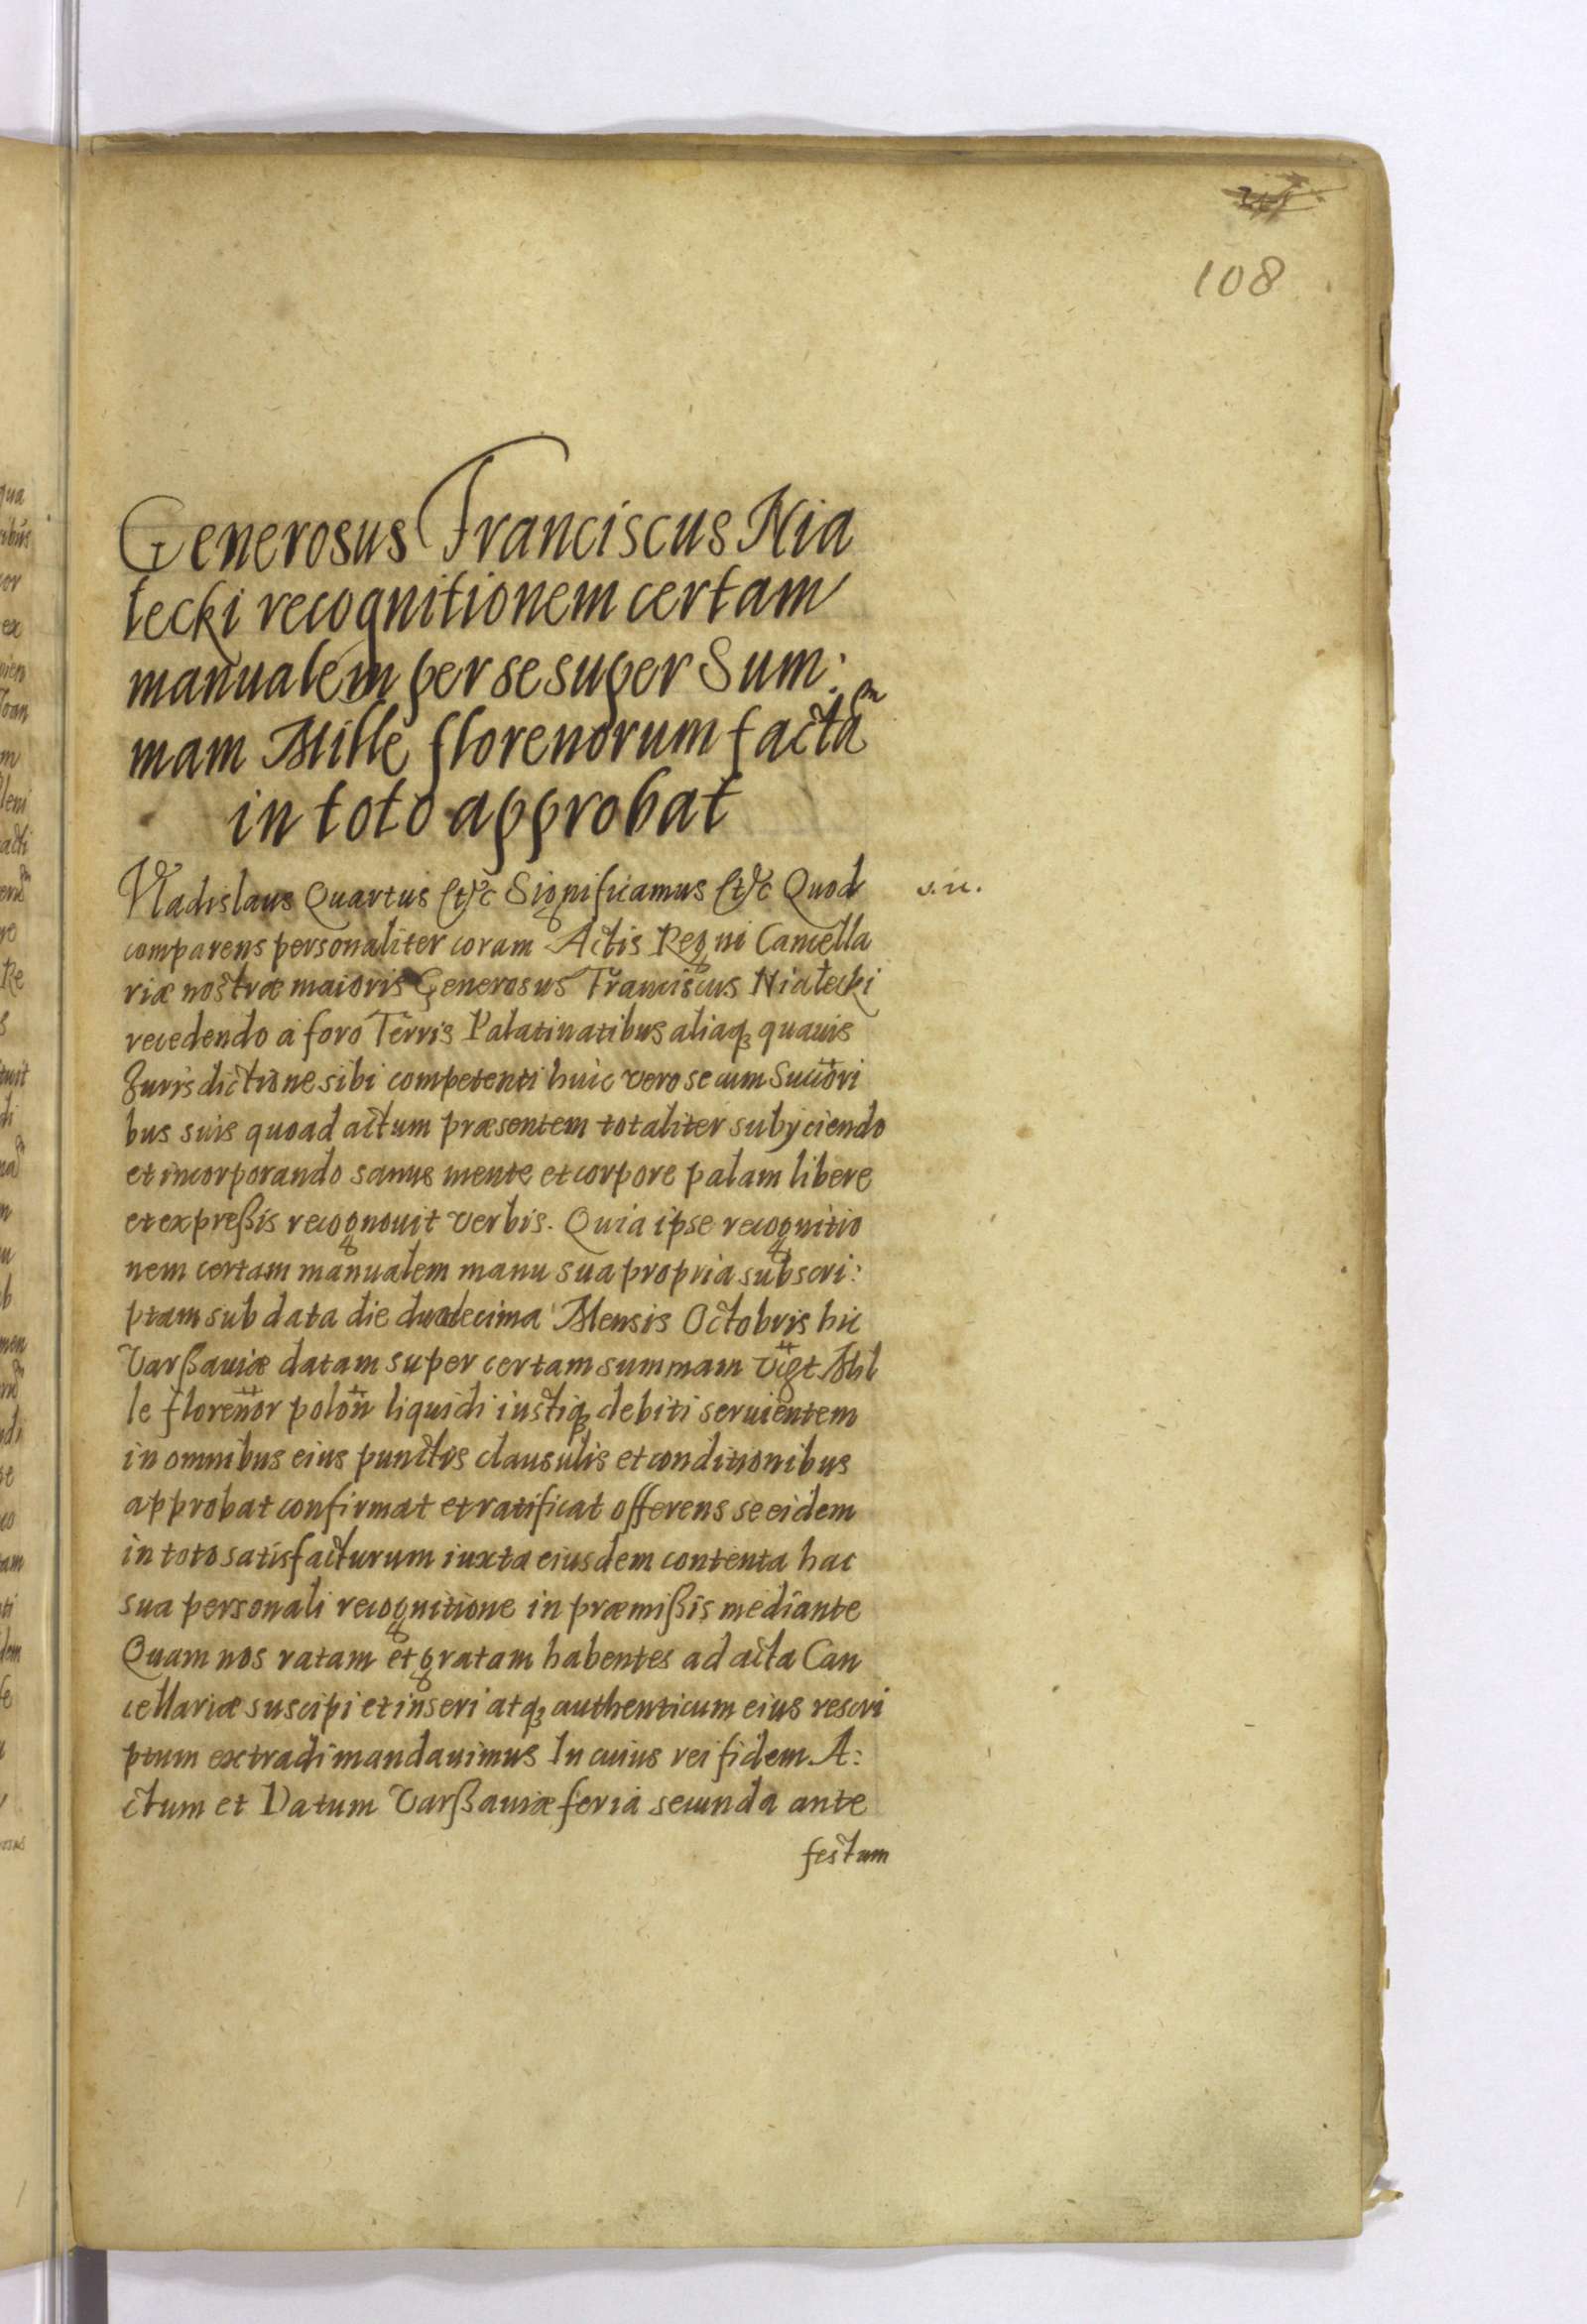 108
Generosus Franciscus Nia
tecki recognitionem certam
manualem per se super Sum:
mam Mille florenorum factam
in toto approbat
Vladislaus Quartus etc Significamus etc Quod
comparens personaliter coram Actis Regni Cancella
riæ nostræ maioris Generosus Franciscus Niatecki
recedendo a foro Terris Palatinatibus aliaq3 quauis
Jurisdictione sibi competenti huic vero se cum Succōri
bus suis quoad actum præsentem totaliter subyciendo
et incorporando sanus mente et corpore palam libere
et expreßis recognouit verbis. Quia ipse recognitio
nem certam manualem manu sua propria subscri:
ptam sub data die duodecima Mensis Octobris hic
Varßauiæ datam super certam summam Mil
le florenor polon liquidi iustiq3 debiti seruientem
in omnibus eius punctis clausulis et conditionibus
approbat confirmat et ratificat offerens se eidem
in toto satisfacturum iuxta eiusdem contenta hac
sua personali recognitione in præmißis mediante
Quam nos ratam et gratam habentes ad acta Can
cellariæ suscipi et inseri atq3 authenticum eius rescri
ptum extradi mandauimus In cuius rei fidem A:
ctum et Datum Varßauiæ feria secunda ante
festum